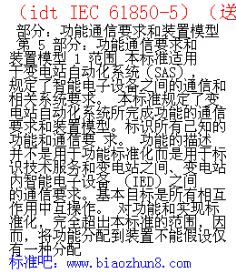 （idt IEC 61850-5）（送
部分：功能通信要求和装置模型
第 5 部分：功能通信要求和
装置模型 1 范围 本标准适用
于变电站自动化系统(SAS)，
规定了智能电子设备之间的通信和
相关系统要求。 本标准规定了变
电站自动化系统所完成功能的通信
要求和装置模型。标识所有已知的
功能和通信要 求。 功能的描述
并不是用于功能标准化而是用于标
识技术服务和变电站之间、变电站
内智能电子设备 （IED）之间
的通信要求。基本目标是所有相互
作用中互操作。 对功能和实现标
准化，完全超出本标准的范围，因
而，将功能分配到装置不能假设仅
有一种分配
标准吧：www.biaozhun8.com